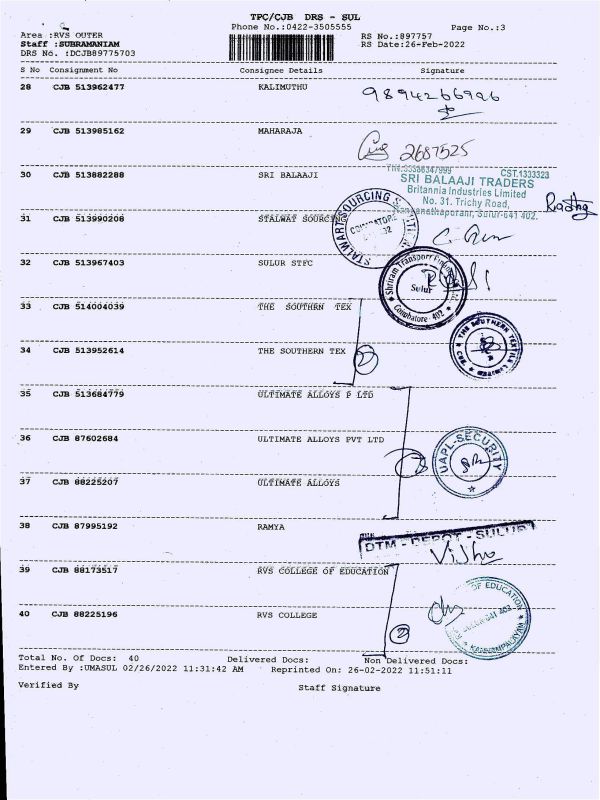 TPC/CJB DRS - SUL
Phone No.:0422-3505555
Page No.:3
Area :RVS OUTER
RS No.:897757
Staff :SUBRAMANIAM
RS Date:26-Feb-2022
DRS No. :DCJB89775703
S No Consignment No Consignee Details Signature
28 CJB 513962477 KALIMUTHU
9894266926
29 CJB 513985162 MAHARAJA
2687525
30 CJB 513882288 SRI BALAAJI
CST.1333323
SRI BALAAJI TRADERS
Britannia Industries Limited
No. 31. Trichy Road,
Sulur-641 402.
31 CJB 513990208 STALWAT SOURCING
STALWART SOURCING
32 CJB 513967403 SULUR STFC
Shriram Transport
Sulur
Coimbatore 402
33 CJB 514004039 THE SOUTHRN TEX
34 CJB 513952614 THE SOUTHERN TEX
2
THE SOUTHERN TEXTILE
35 CJB 513684779 ULTIMATE ALLOYS P LTD
36 CJB 87602684 ULTIMATE ALLOYS PVT LTD
UAPL-SECURITY
37 CJB 88225207 ULTIMATE ALLOYS
38 CJB 87995192 RAMYA
DTM - DEPOT - SULUR
39 CJB 88173517 RVS COLLEGE OF EDUCATION
40 CJB 88225196 RVS COLLEGE
2
OF EDUCATION
SULUR 641 402
Total No. Of Docs: 40 Delivered Docs: Non Delivered Docs:
Entered By :UMASUL 02/26/2022 11:31:42 AM Reprinted On: 26-02-2022 11:51:11
Verified By Staff Signature